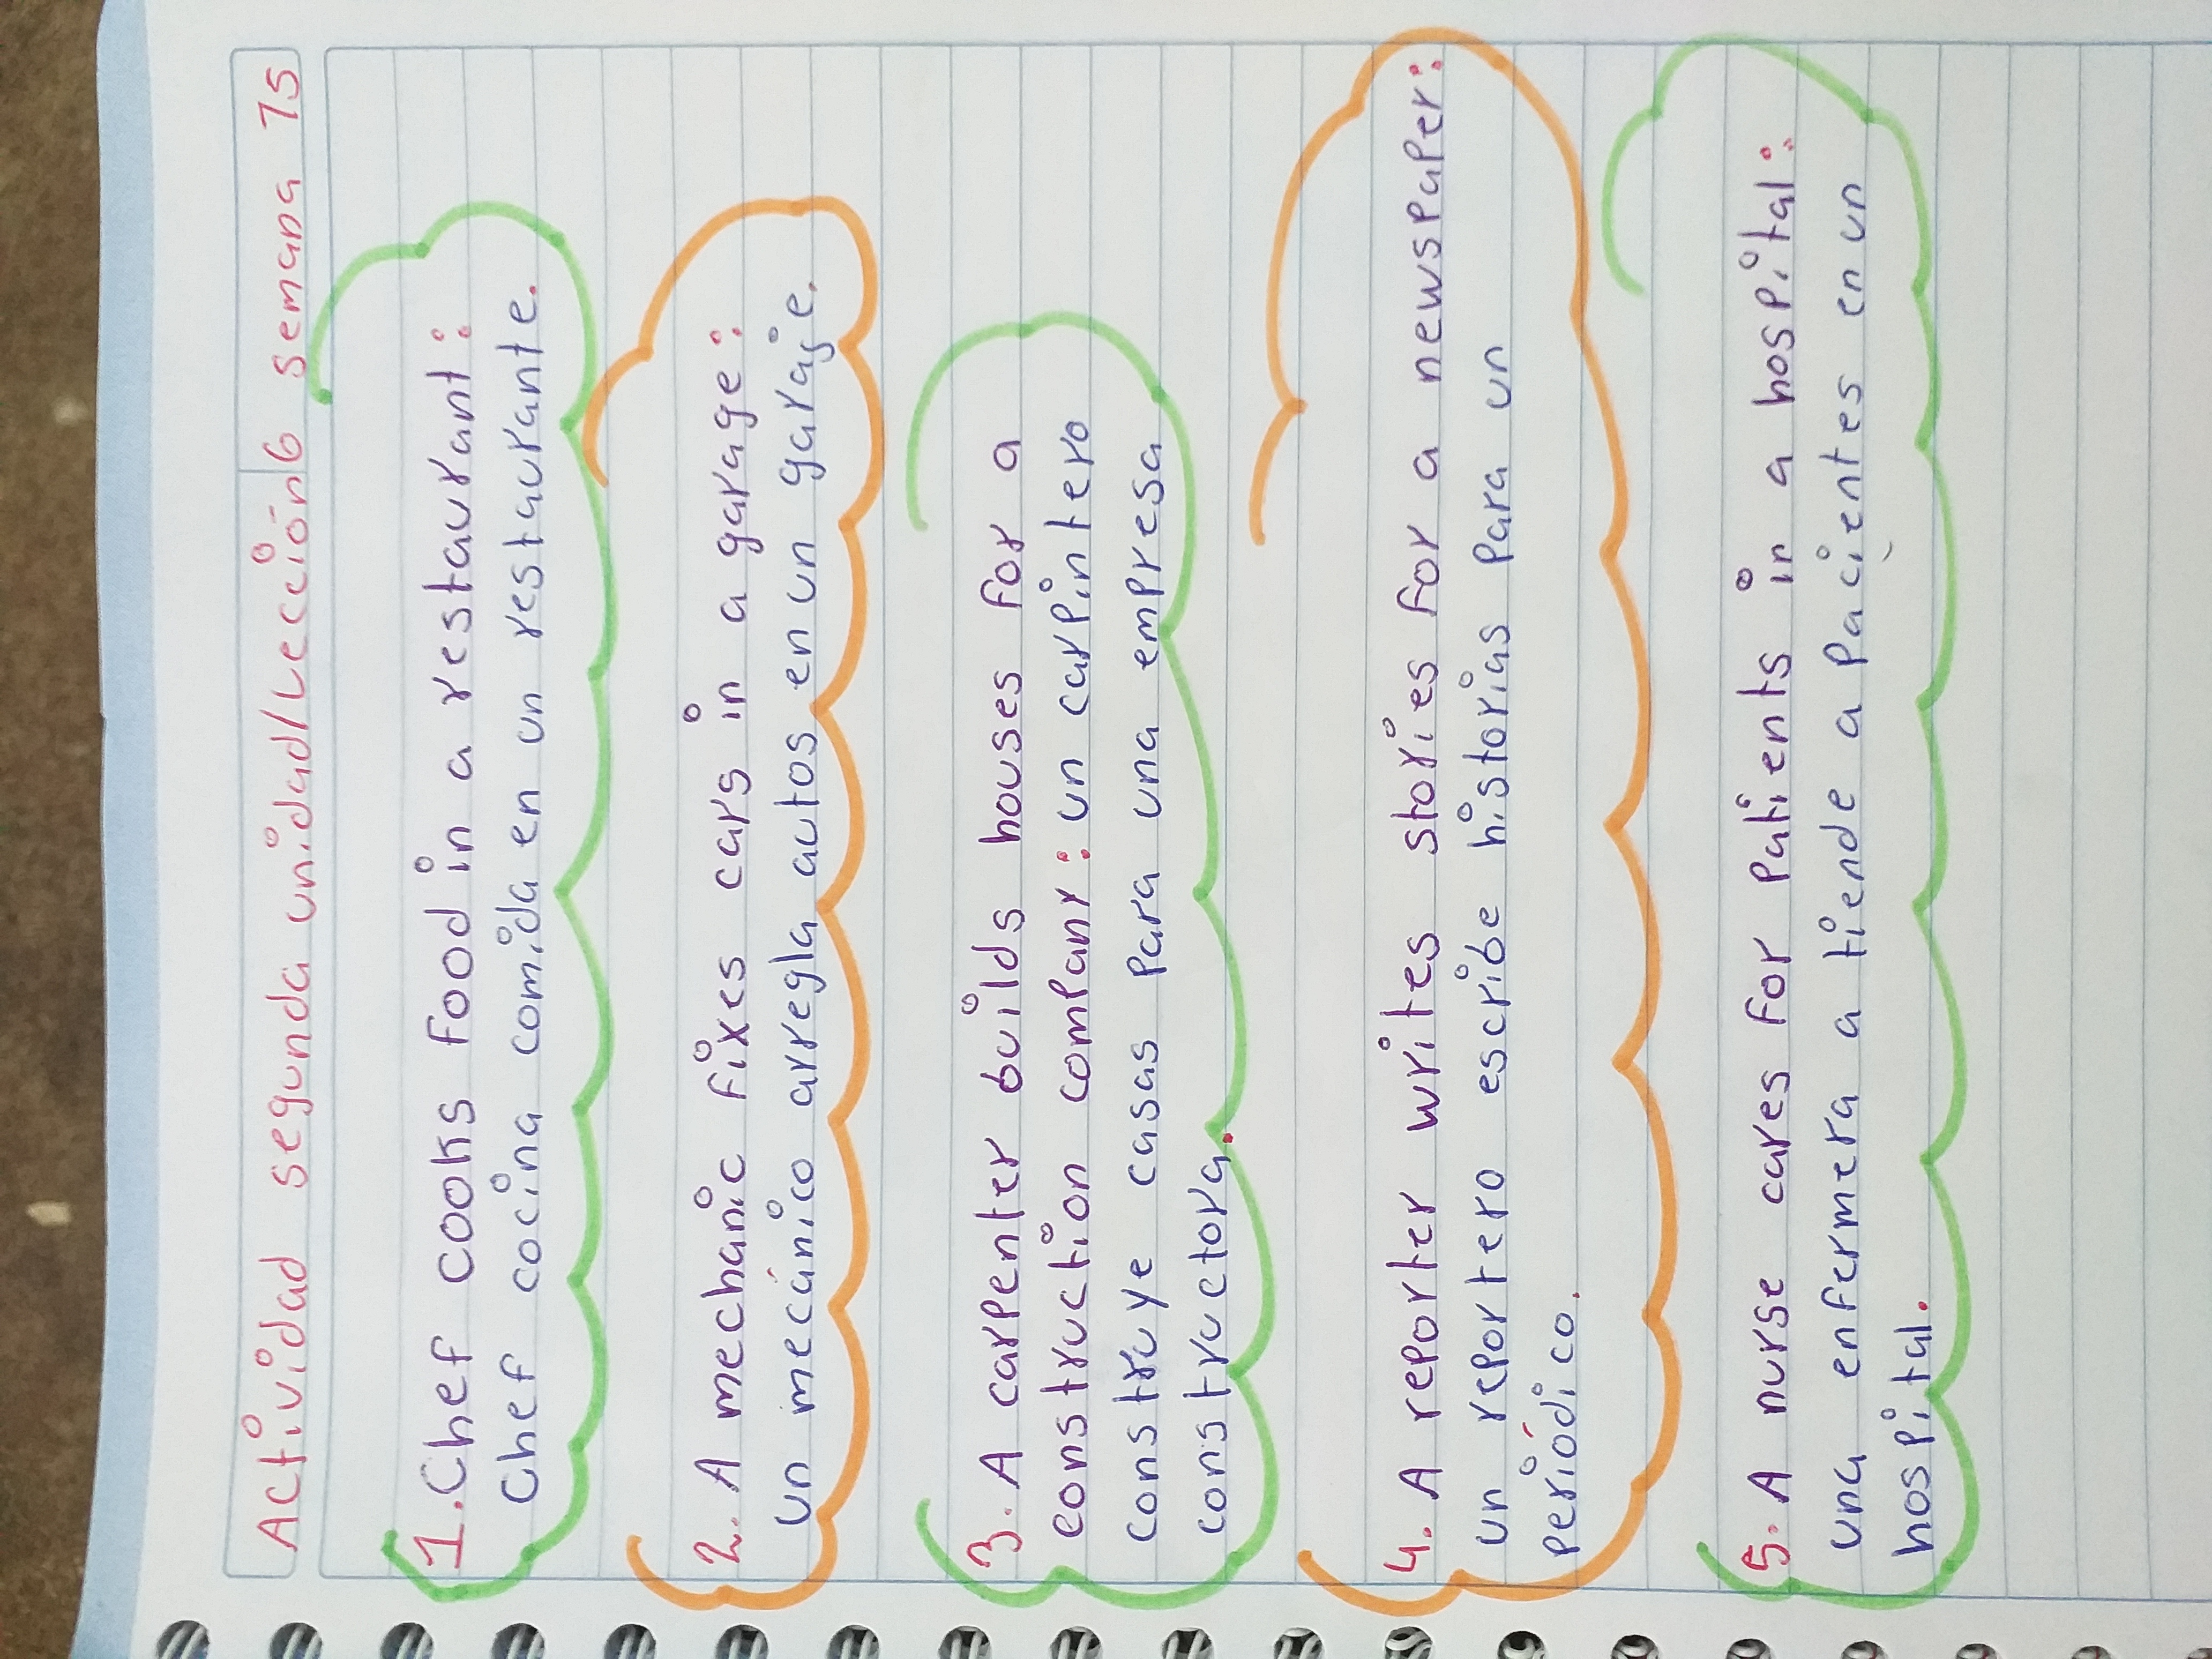 Actividad segunda unidad/Lección 6 semana 15
1. Chef cooks food in a restaurant:
Chef cocina comida en un restaurante.
2. A mechanic fixes cars in a garage:
un mecánico arregla autos en un garaje.
3. A carpenter builds houses for a
construction company: un carpintero
construye casas para una empresa
constructora.
4. A reporter writes stories for a newspaper:
un reportero escribe historias para un
periódico.
5. A nurse cares for patients in a hospital:
una enfermera a tiende a pacientes en un
hospital.